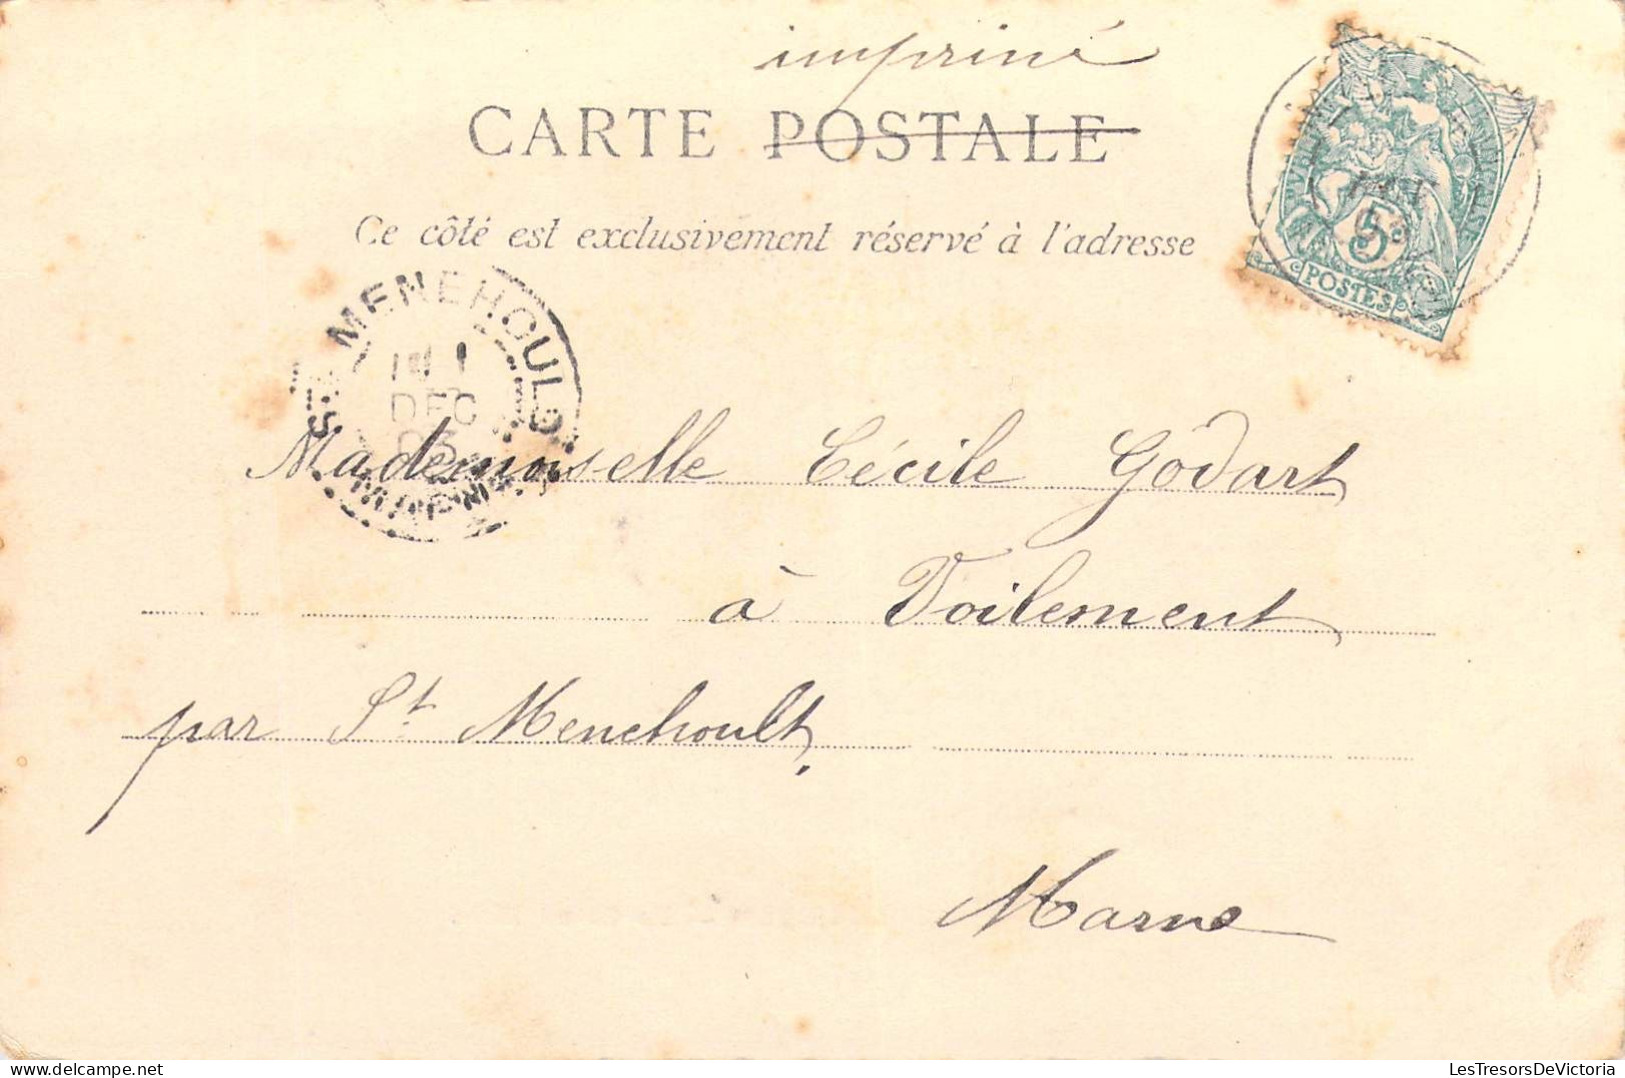 imprimé
CARTE POSTALE
Ce côté est exclusivement réservé à l'adresse
5c
POSTES
STE MENEHOULD
1
DEC
03
MARNE
Mademoiselle Cécile Godart
à Voilement
par St Menehoult.
Marne
LesTresorsDeVictoria